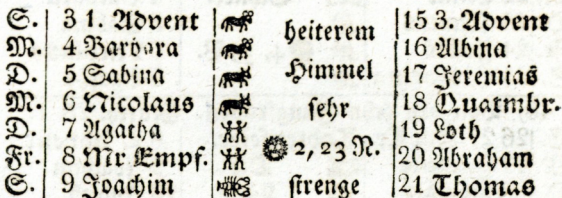 S. 3 1. Advent heiterem 15 3. Advent
M. 4 Barbara Himmel 16 Albina
D. 5 Sabina 17 Jeremias
M. 6 Nicolaus sehr 18 Quatmbr.
D. 7 Agatha 19 Loth
Fr. 8 Mr Empf. 2, 23 N. 20 Abraham
S. 9 Joachim strenge 21 Thomas